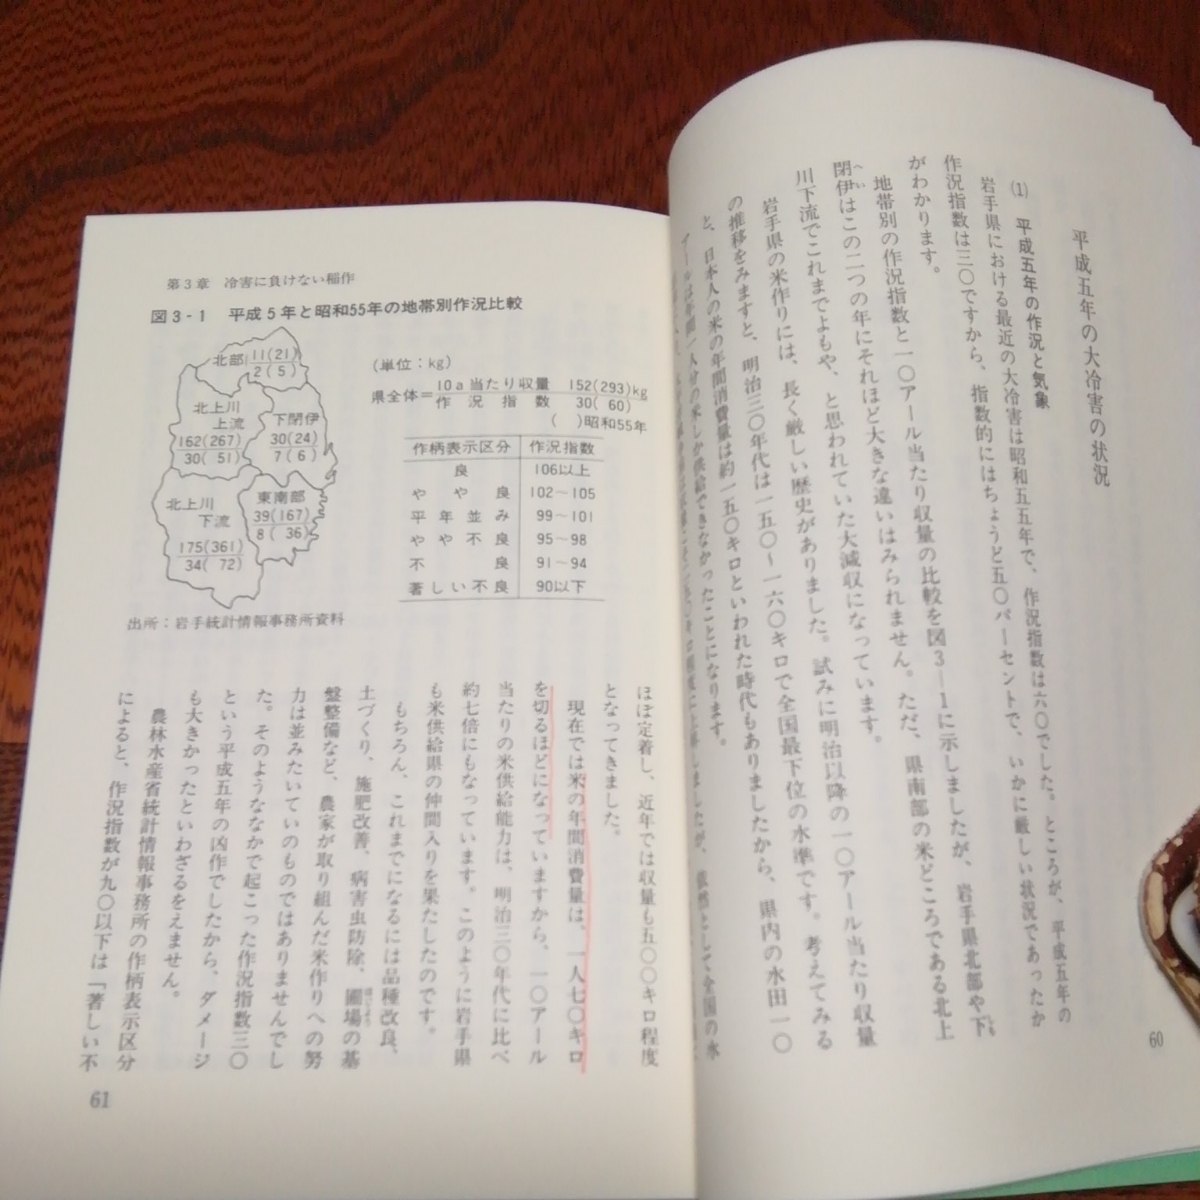 平成五年の大冷害の状況
(1) 平成五年の作況と気象
岩手県における最近の大冷害は昭和五五年で、作況指数は六〇でした。ところが、平成五年の
作況指数は三〇ですから、指数的にはちょうど五〇パーセントで、いかに厳しい状況であったか
がわかります。
地帯別の作況指数と一〇アール当たり収量の比較を図3―1に示しましたが、岩手県北部や下
閉伊はこの二つの年にそれほど大きな違いはみられません。ただ、県南部の米どころである北上
川下流でこれまでよもや、と思われていた大減収になっています。
岩手県の米作りには、長く厳しい歴史がありました。試みに明治以降の一〇アール当たり収量
の推移をみますと、明治三〇年代は一五〇~一六〇キロで全国最下位の水準です。考えてみる
と、日本人の米の年間消費量は約一五〇キロといわれた時代もありましたから、県内の水田一〇
アールは年間一人分の米しか供給できなかったことになります。
60
第3章 冷害に負けない稲作
図3-1 平成5年と昭和55年の地帯別作況比較
北部 11(21)
2(5)
北上川
上流
162(267)
30(51)
下閉伊
30(24)
7(6)
北上川
下流
175(361)
34(72)
東南部
39(167)
8(36)
(単位:kg)
県全体=10a当たり収量 152(293)kg
作況指数 30(60)
( )昭和55年
作柄表示区分 作況指数
良 106以上
やや良 102~105
平年並み 99~101
やや不良 95~98
不良 91~94
著しい不良 90以下
出所:岩手統計情報事務所資料
ほぼ定着し、近年では収量も五〇〇キロ程度
となってきました。
現在では米の年間消費量は、一人七〇キロ
を切るほどになっていますから、一〇アール
当たりの米供給能力は、明治三〇年代に比べ
約七倍にもなっています。このように岩手県
も米供給県の仲間入りを果たしたのです。
もちろん、これまでになるには品種改良、
土づくり、施肥改善、病害虫防除、圃場の基
盤整備など、農家が取り組んだ米作りへの努
力は並みたいていのものではありませんでし
た。そのようななかで起こった作況指数三〇
という平成五年の凶作でしたから、ダメージ
も大きかったといわざるをえません。
農林水産省統計情報事務所の作柄表示区分
によると、作況指数が九〇以下は「著しい不
61